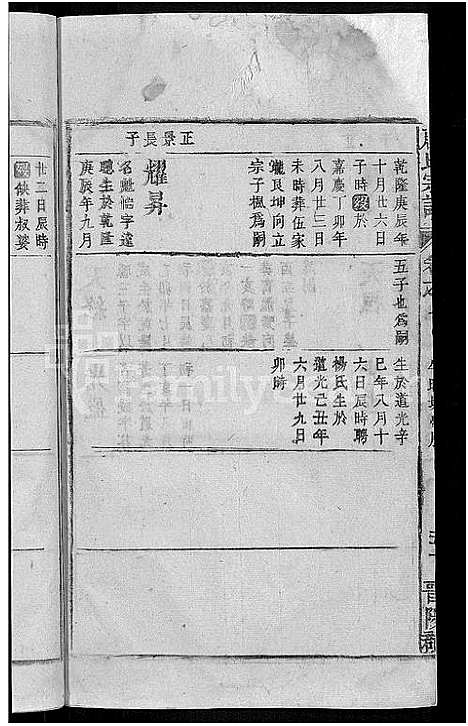 乾隆庚辰年
十月廿六日
子時歿於
嘉慶丁卯年
八月廿三日
未時葬伍家
隴艮坤向立
宗子楓為嗣
正景長子
耀昇
名魁怡字達
聰生於乾隆
庚辰年九月
五子也為嗣
生於道光辛
巳年八月十
六日辰時聘
楊氏生於
道光己丑年
六月廿九日
卯時
廿三日辰時
歿葬叔婆
晉陽
family